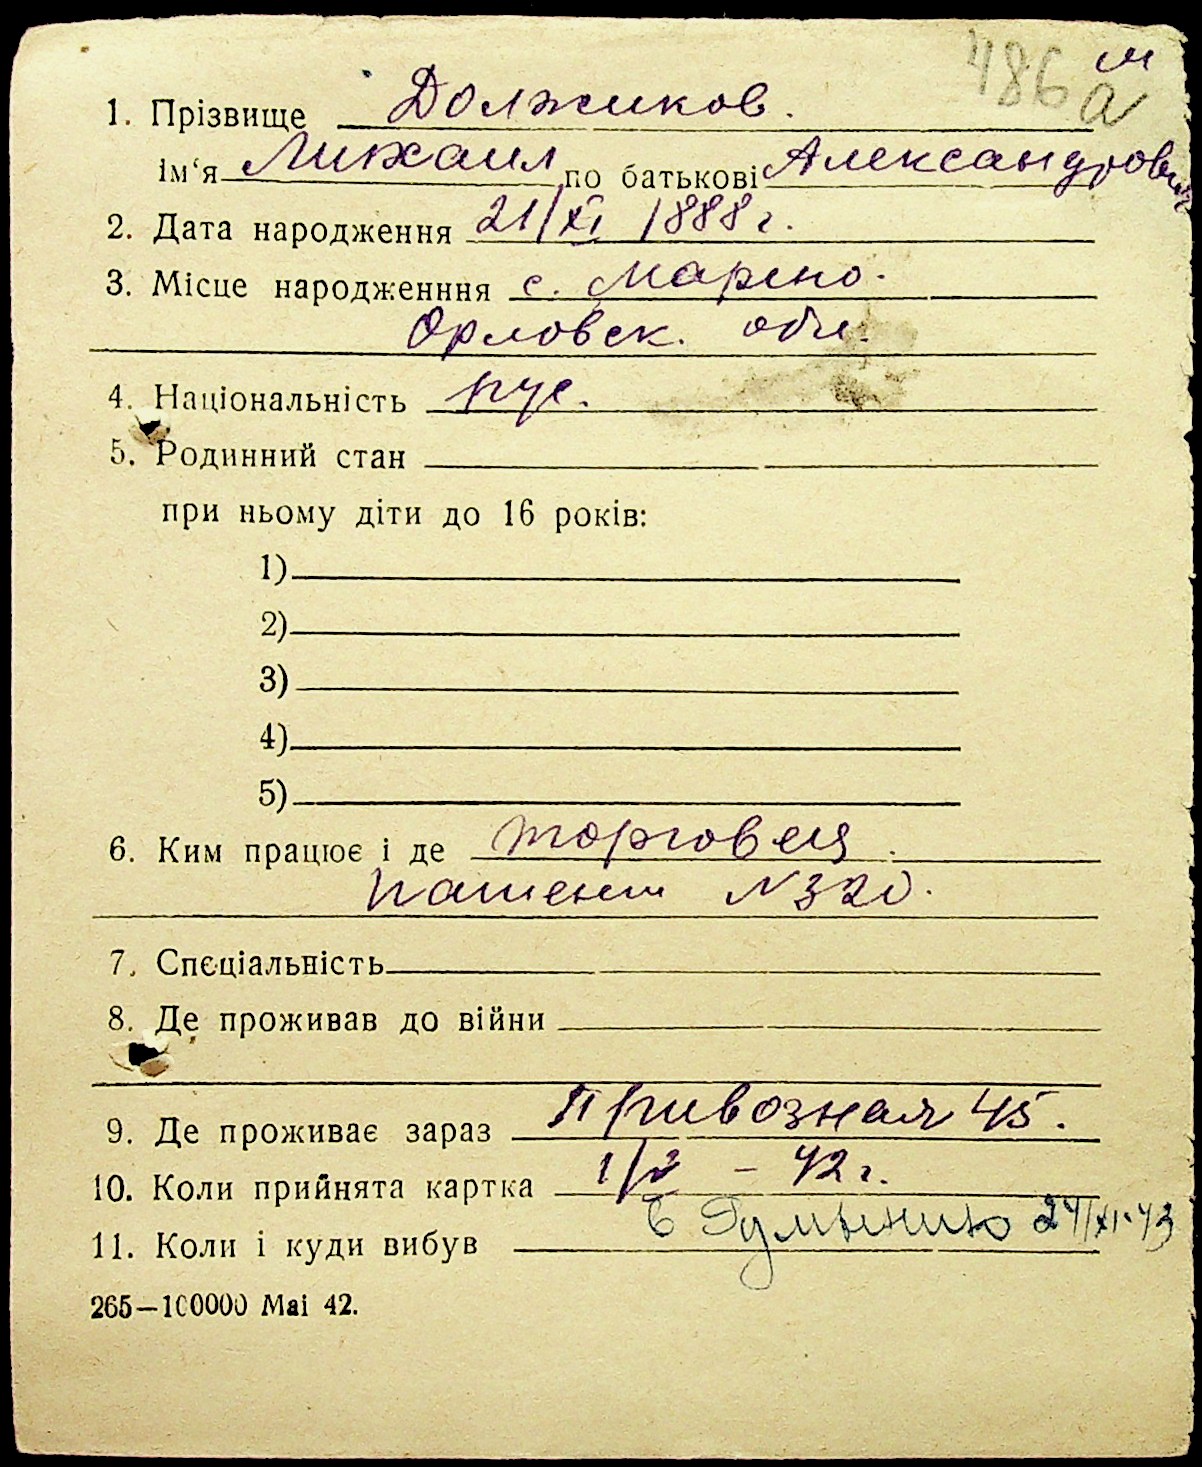 486 а м
1. Прізвище Должиков.
Ім‘я Михаил по батькові Александрович
2. Дата народження 21/XI 1888 г.
3. Місце народженння с. Марьно.
Орловск. обл.
4. Національність рус.
5. Родинний стан
при ньому діти до 16 років:
1)
2)
3)
4)
5)
6. Ким працює і де торговец.
патент N 320.
7. Спеціальність
8. Де проживав до війни
9. Де проживає зараз Привозная 45.
10. Коли прийнята картка 1/2 – 42 г.
11. Коли і куди вибув В Румынию 24/XI-43
265—100000 Mai 42.